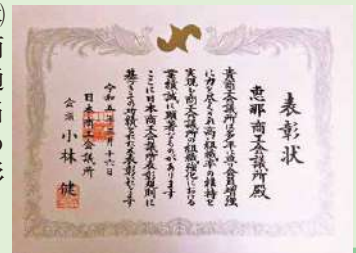 表彰状
恵那商工会議所殿
貴商工会議所は多年に亘り会員増強
に力を尽くされ高組織率の維持を
実現し商工会議所の組織強化における
業績誠に顕著なものがあります
ここに日本商工会議所表彰規則に
基づきその功績をたたえ表彰します
令和五年三月十六日
日本商工会議所
会頭 小林 健